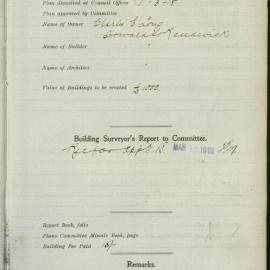 Plan deposited at Council Office 11-3-18
Plan approved by Committee
Name of Owner Charles E Long
Randwick
Name of Builder
Name of Architect
Value of Buildings to be erected £1000.
Building Surveyor's Report to Committee.
MAR 1918
Report Book, folio
Plans Committee Minute Book, page
Building Fee Paid
Remarks.